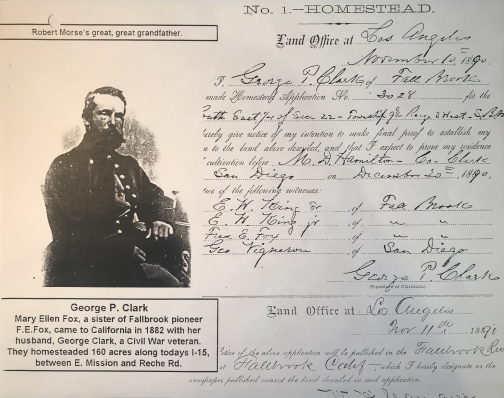 No. 1.—HOMESTEAD.
Robert Morse's great, great grandfather.
Land Office at Los Angeles
November 10th, 1890.
I, George P. Clark of Fall Brook
made Homestead Application No. 3028 for the
South East 1/4 of Sec 22 - Township 9 S Range 3 West S.B.M.
hereby give notice of my intention to make final proof to establish my
to the land above described, and that I expect to prove my residence
cultivation before M. D. Hamilton - Co. Clerk
San Diego on December 20th, 1890,
two of the following witnesses:
E. W. King Sr of Fall Brook
E. H. King jr of " "
Fred E. Fox of " "
Geo Vigneron of San Diego
George P. Clark
(Signature of Claimant.)
George P. Clark
Mary Ellen Fox, a sister of Fallbrook pioneer
F.E.Fox, came to California in 1882 with her
husband, George Clark, a Civil War veteran.
They homesteaded 160 acres along todays I-15,
between E. Mission and Reche Rd.
Land Office at Los Angeles
Nov 11th, 1890
Notice of the above application will be published in the Fallbrook Rev
at Fallbrook Calif, which I hereby designate as the
newspaper published nearest the land described in said application.